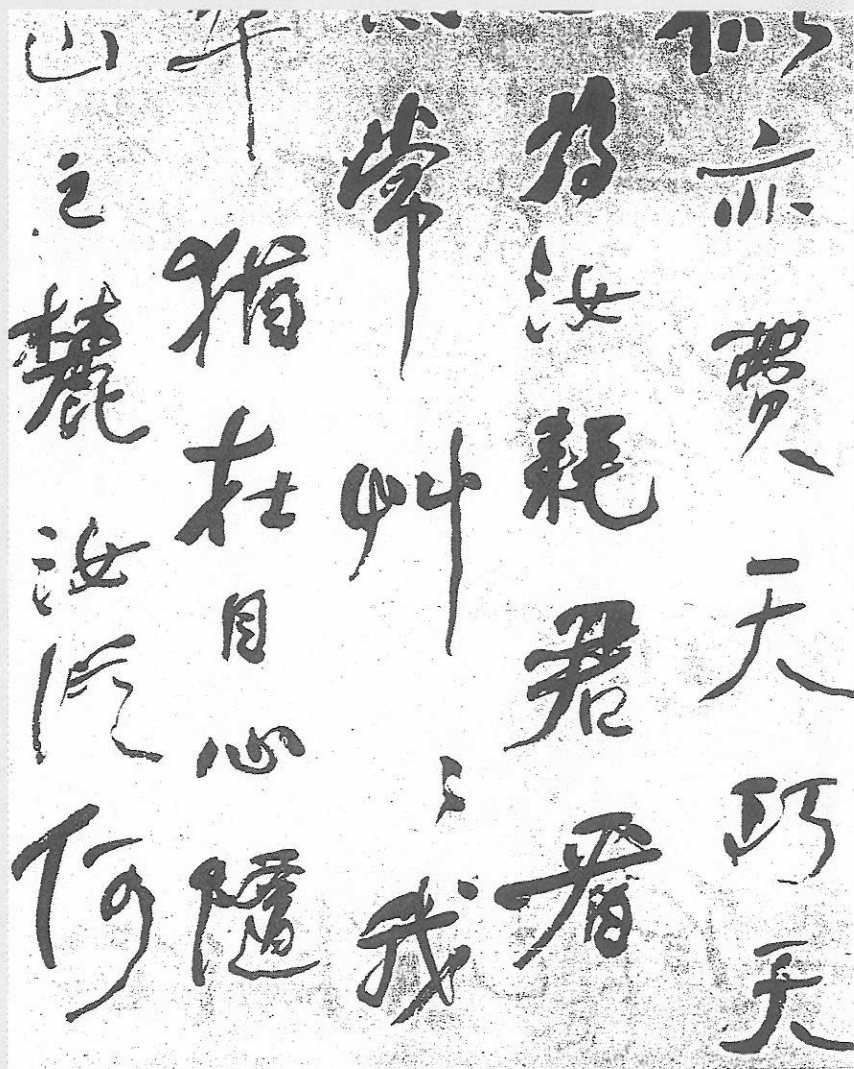 似亦費天巧天
為汝耗君看
常艸〻我
年猶在目心隨
山之麓汝從何